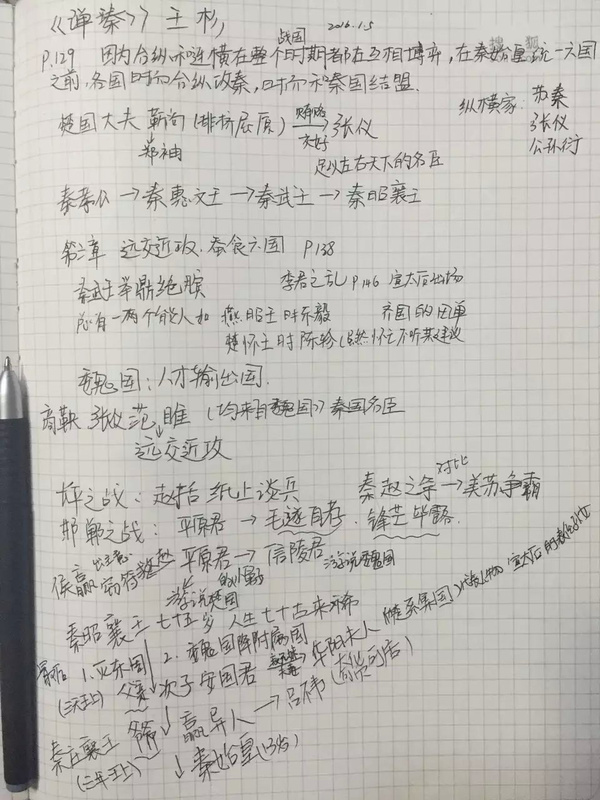 《弹秦》 王杉 2016.1.5
搜狐
P.129 因为合纵和连横在整个战国时期都在互相博弈，在秦始皇统一六国
之前，各国时而合纵攻秦，时而和秦国结盟.
楚国大夫 靳尚 (排挤屈原) 贿赂 交好 → 张仪 纵横家：苏秦
郑袖 足以左右天下的名臣 张仪
公孙衍
秦孝公 → 秦惠文王 → 秦武王 → 秦昭襄王
第二章 远交近攻.蚕食六国 P138
秦武王举鼎绝膑 季君之乱 P146 宣太后出场
总有一两个能人如 燕昭王时乐毅 齐国的田单
楚怀王时陈轸 (虽然怀王不听其建议
魏国：人才输出国.
商鞅 张仪 范雎 (均来自魏国) 秦国名臣
远交近攻
长平之战：赵括 纸上谈兵 秦赵之争 对比 → 美苏争霸
邯郸之战：平原君 → 毛遂自荐. 锋芒毕露.
侯嬴 窃符救赵 平原君 → 信陵君 游说魏国
游说楚国
秦昭襄王 七十五岁 人生七十古来稀 (楚系集团)
1. 2. 魏国降附属国
(三天王上) 父亲 次子 安国君 → 华阳夫人
秦庄襄王 爷爷 ↓ 嬴异人 → 吕不韦 (奇货可居)
(三年王上) ↓ 秦始皇 (13岁)